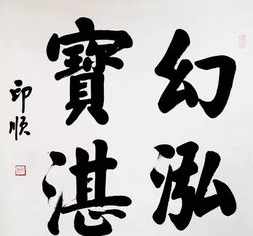 幻泓
寶湛
印順